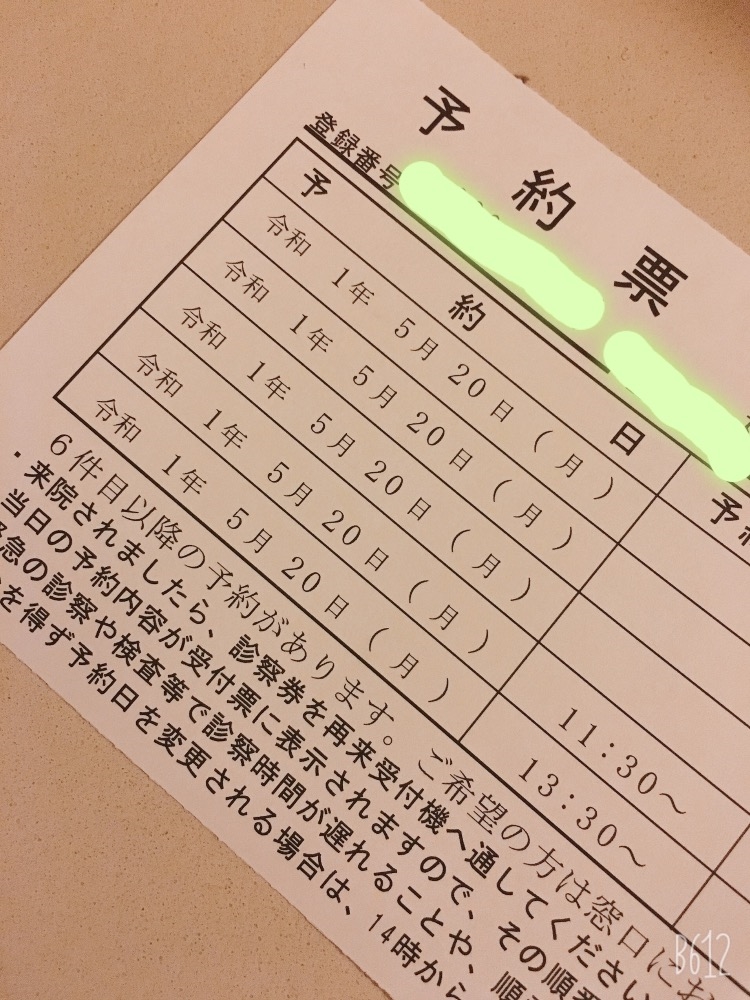 予約票
登録番号
予約日 予約
令和 1年 5月 20日 (月)
令和 1年 5月 20日 (月)
令和 1年 5月 20日 (月)
令和 1年 5月 20日 (月) 11:30～
令和 1年 5月 20日 (月) 13:30～
6件目以降の予約があります。ご希望の方は窓口にお
・来院されましたら、診察券を再来受付機へ通してください
当日の予約内容が受付票に表示されますので、その順番
急の診察や検査等で診察時間が遅れることや、順
を得ず予約日を変更される場合は、14時から
B612